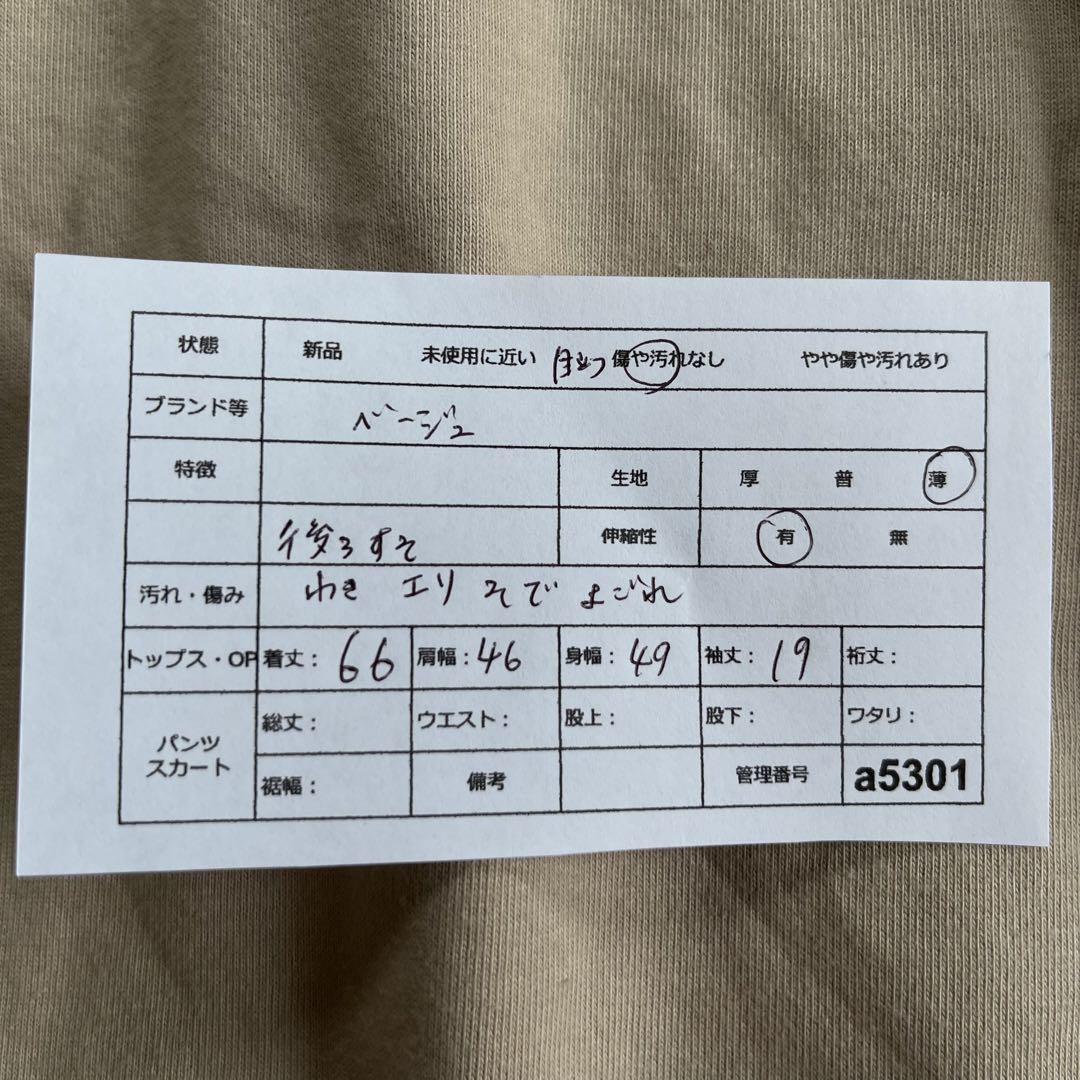 状態 新品 未使用に近い 目立つ 傷や汚れなし やや傷や汚れあり
ブランド等 ベージュ
特徴 生地 厚 普 薄
後ろすそ 伸縮性 有 無
汚れ・傷み わき エリ そで よごれ
トップス・OP 着丈：66 肩幅：46 身幅：49 袖丈：19 裄丈：
パンツ スカート 総丈： ウエスト： 股上： 股下： ワタリ：
裾幅： 備考 管理番号 a5301